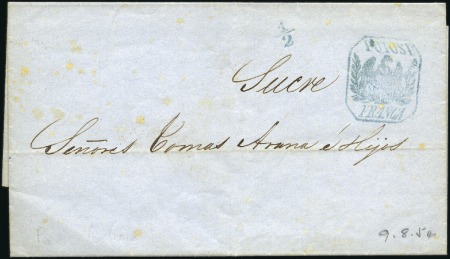 1/2
POTOSI
FRANCA
Sucre
Señores Tomas Arana é Hijos
9.8.50